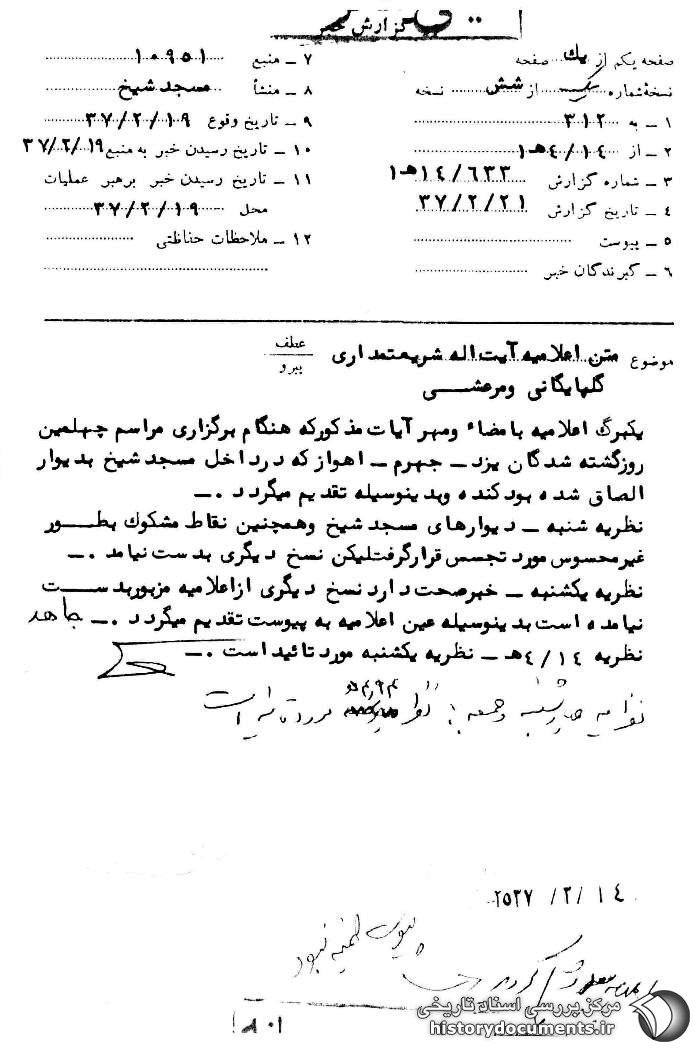 گزارش خبر
صفحه یکم از یک صفحه
نسخهٔ شماره یک از شش نسخه
۱ ــ به ۳۱۲
۲ ــ از ۴/۱۴هـ۱
۳ ــ شماره گزارش ۱۴/۶۳۳هـ۱
۴ ــ تاریخ گزارش ۳۷/۲/۲۱
۵ ــ پیوست
۶ ــ گیرندگان خبر
۷ ــ منبع ۱۰۹۵۱
۸ ــ منشأ مسجد شیخ
۹ ــ تاریخ وقوع ۳۷/۲/۱۹
۱۰ ــ تاریخ رسیدن خبر به منبع ۳۷/۲/۱۹
۱۱ ــ تاریخ رسیدن خبر برهبر عملیات
محل ۳۷/۲/۱۹
۱۲ ــ ملاحظات حفاظتی
موضوع متن اعلامیه آیت اله شریعتمداری
گلپایگانی و مرعشی
عطف
پیرو
یکبرگ اعلامیه با مضاء ومهر آیات مذکور که هنگام برگزاری مراسم چهلمین
روز گشته شدگان یزد ــ جهرم ــ اهواز که در داخل مسجد شیخ بدیوار
الصاق شده بود کنده وبدینوسیله تقدیم میگردد .ــ
نظریه شنبه ــ دیوارهای مسجد شیخ وهمچنین نقاط مشکوک بطور
غیرمحسوس مورد تجسس قرار گرفت لیکن نسخ دیگری بدست نیامد .ــ
نظریه یکشنبه ــ خبر صحت دارد نسخ دیگری از اعلامیه مزبور بدست
نیامده است بدینوسیله عین اعلامیه به پیوست تقدیم میگردد .ــ جاهد
نظریه ۴/۱۴هـ ــ نظریه یکشنبه مورد تائید است .ــ
نظریه چهارشنبه و جمعه : نظریه مورد تائید است
۲۵۳۷/۲/۱۴
پیوست ضمیمه نبود
۸۰۱
مرکز بررسی اسناد تاریخی
historydocuments.ir